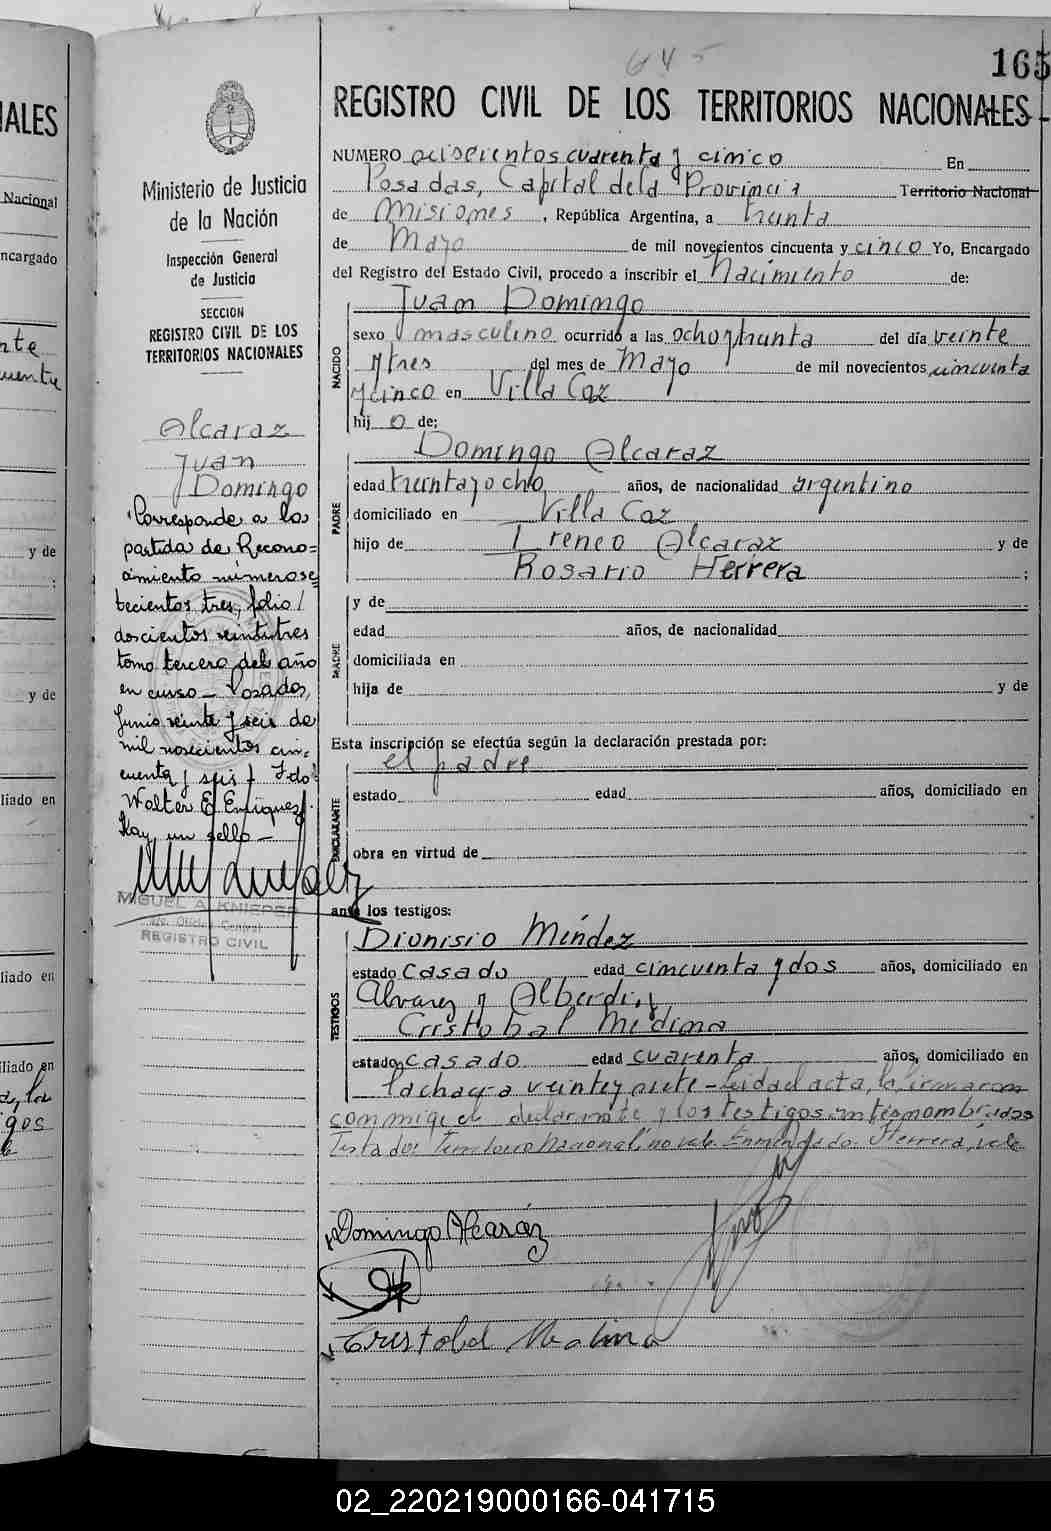 645
165
IALES
REGISTRO CIVIL DE LOS TERRITORIOS NACIONALES
NUMERO seiscientos cuarenta y cinco En
Posadas, Capital de la Provincia Territorio Nacional
de Misiones, República Argentina, a treinta
de Mayo de mil novecientos cincuenta y cinco Yo, Encargado
del Registro del Estado Civil, procedo a inscribir el Nacimiento de:
NACIDO
Juan Domingo
sexo masculino ocurrido a las ocho y treinta del día veinte
y tres del mes de Mayo de mil novecientos cincuenta
y cinco en Villa Coz
hij o de:
PADRE
Domingo Alcaraz
edad treinta y ocho años, de nacionalidad argentino
domiciliado en Villa Coz
hijo de Ireneo Alcaraz y de
Rosario Herrera ;
MADRE
y de
edad años, de nacionalidad
domiciliada en
hija de y de
Esta inscripción se efectúa según la declaración prestada por:
DECLARANTE
el padre
estado edad años, domiciliado en
obra en virtud de
ante los testigos:
TESTIGOS
Dionisio Méndez
estado casado edad cincuenta y dos años, domiciliado en
Alvarez y Alberdi, y
Cristobal Medina
estado casado edad cuarenta años, domiciliado en
la chacra veinte y siete - Leida el acta, la firmaron
conmigo el declarante y los testigos antes nombrados
Testado: Territorio Nacional, no vale. Enmendado: Herrera, vale
Domingo Alcaráz
Cristobal Medina
Ministerio de Justicia
de la Nación
Inspección General
de Justicia
SECCION
REGISTRO CIVIL DE LOS
TERRITORIOS NACIONALES
Alcaraz
Juan
Domingo
Corresponde a la
partida de Recono=
cimiento número se
tecientos tres, folio /
doscientos veintitres
tomo tercero del año
en curso - Posadas,
Junio veinte y seis de
mil novecientos cin-
cuenta y seis - Fdo:
Walter E. Enriquez.
Hay un sello -
MIGUEL A. KNIEPER
Oficina Central
REGISTRO CIVIL
Nacional
ncargado
y de
y de
liado en
liado en
iliado en
02_220219000166-041715